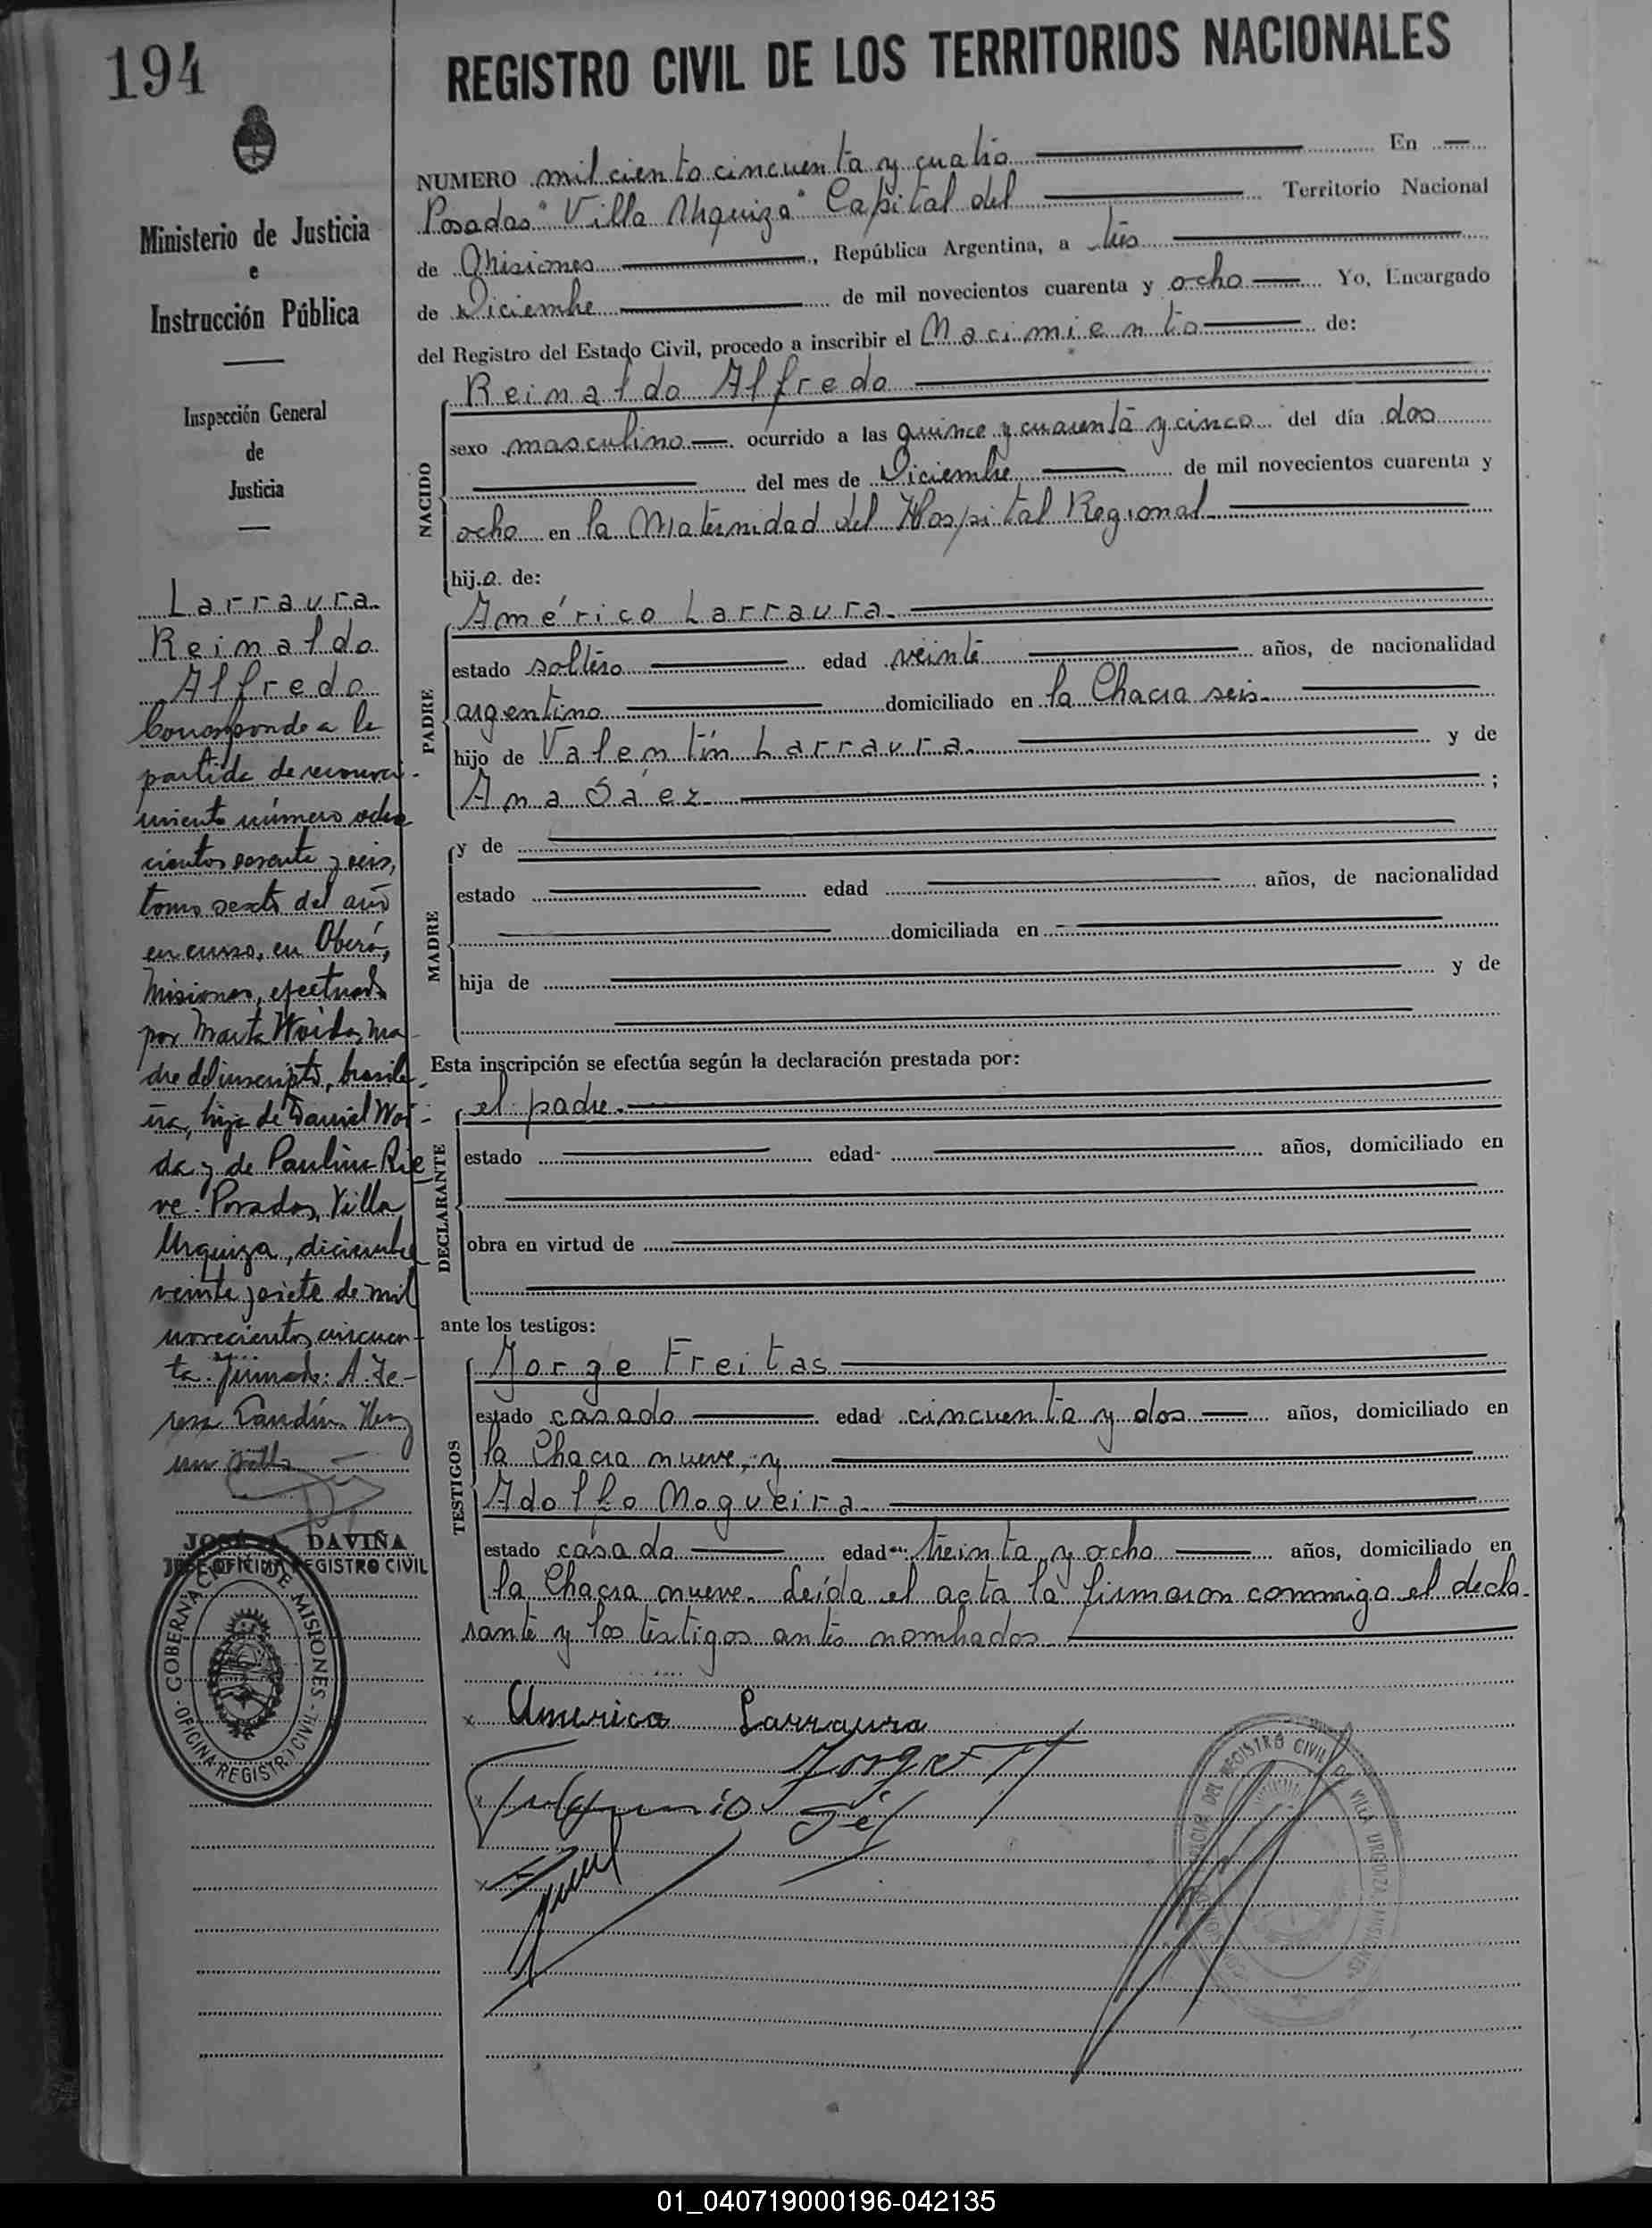 194
REGISTRO CIVIL DE LOS TERRITORIOS NACIONALES
Ministerio de Justicia
e
Instrucción Pública
Inspección General
de
Justicia
NUMERO mil ciento cincuenta y cuatro En
Posadas "Villa Urquiza" Capital del Territorio Nacional
de Misiones, República Argentina, a tres
de Diciembre de mil novecientos cuarenta y ocho Yo, Encargado
del Registro del Estado Civil, procedo a inscribir el Nacimiento de:
NACIDO
Reinaldo Alfredo
sexo masculino ocurrido a las quince y cuarenta y cinco del día dos
del mes de Diciembre de mil novecientos cuarenta y
ocho en la Maternidad del Hospital Regional
hij.o. de:
PADRE
Américo Larraura.
estado soltero edad veinte años, de nacionalidad
argentino domiciliado en la Chacra seis.
hijo de Valentín Larraura. y de
Ana Sáez. ;
MADRE
y de
estado edad años, de nacionalidad
domiciliada en
hija de y de
Esta inscripción se efectúa según la declaración prestada por:
DECLARANTE
el padre.
estado edad años, domiciliado en
obra en virtud de
ante los testigos:
TESTIGOS
Jorge Freitas
estado casado edad cincuenta y dos años, domiciliado en
la Chacra nueve, y
Adolfo Nogueira.
estado casado edad treinta y ocho años, domiciliado en
la Chacra nueve. Leída el acta la firmaron conmigo el decla-
rante y los testigos antes nombrados
Americo Larraura
Jorge
Larraura.
Reinaldo
Alfredo
Corresponde a la
partida de reconoci-
miento número ocho
cientos sesenta y seis,
tomo sexto del año
en curso, en Oberá,
Misiones, efectuada
por Marta Woida, ma-
dre del inscripto, brasile-
ña, hija de Daniel Woi-
da y de Paulina Rie
ve. Posadas, Villa
Urquiza, diciembre
veinte y siete de mil
novecientos cincuen-
ta. Firmado: A. Te-
resa Hay
un sello
JOSÉ A. DAVIÑA
JEFE OFICINA REGISTRO CIVIL
GOBERNACION DE MISIONES
OFICINA REGISTRO CIVIL
DEL REGISTRO CIVIL DE VILLA URQUIZA MISIONES
01_040719000196-042135